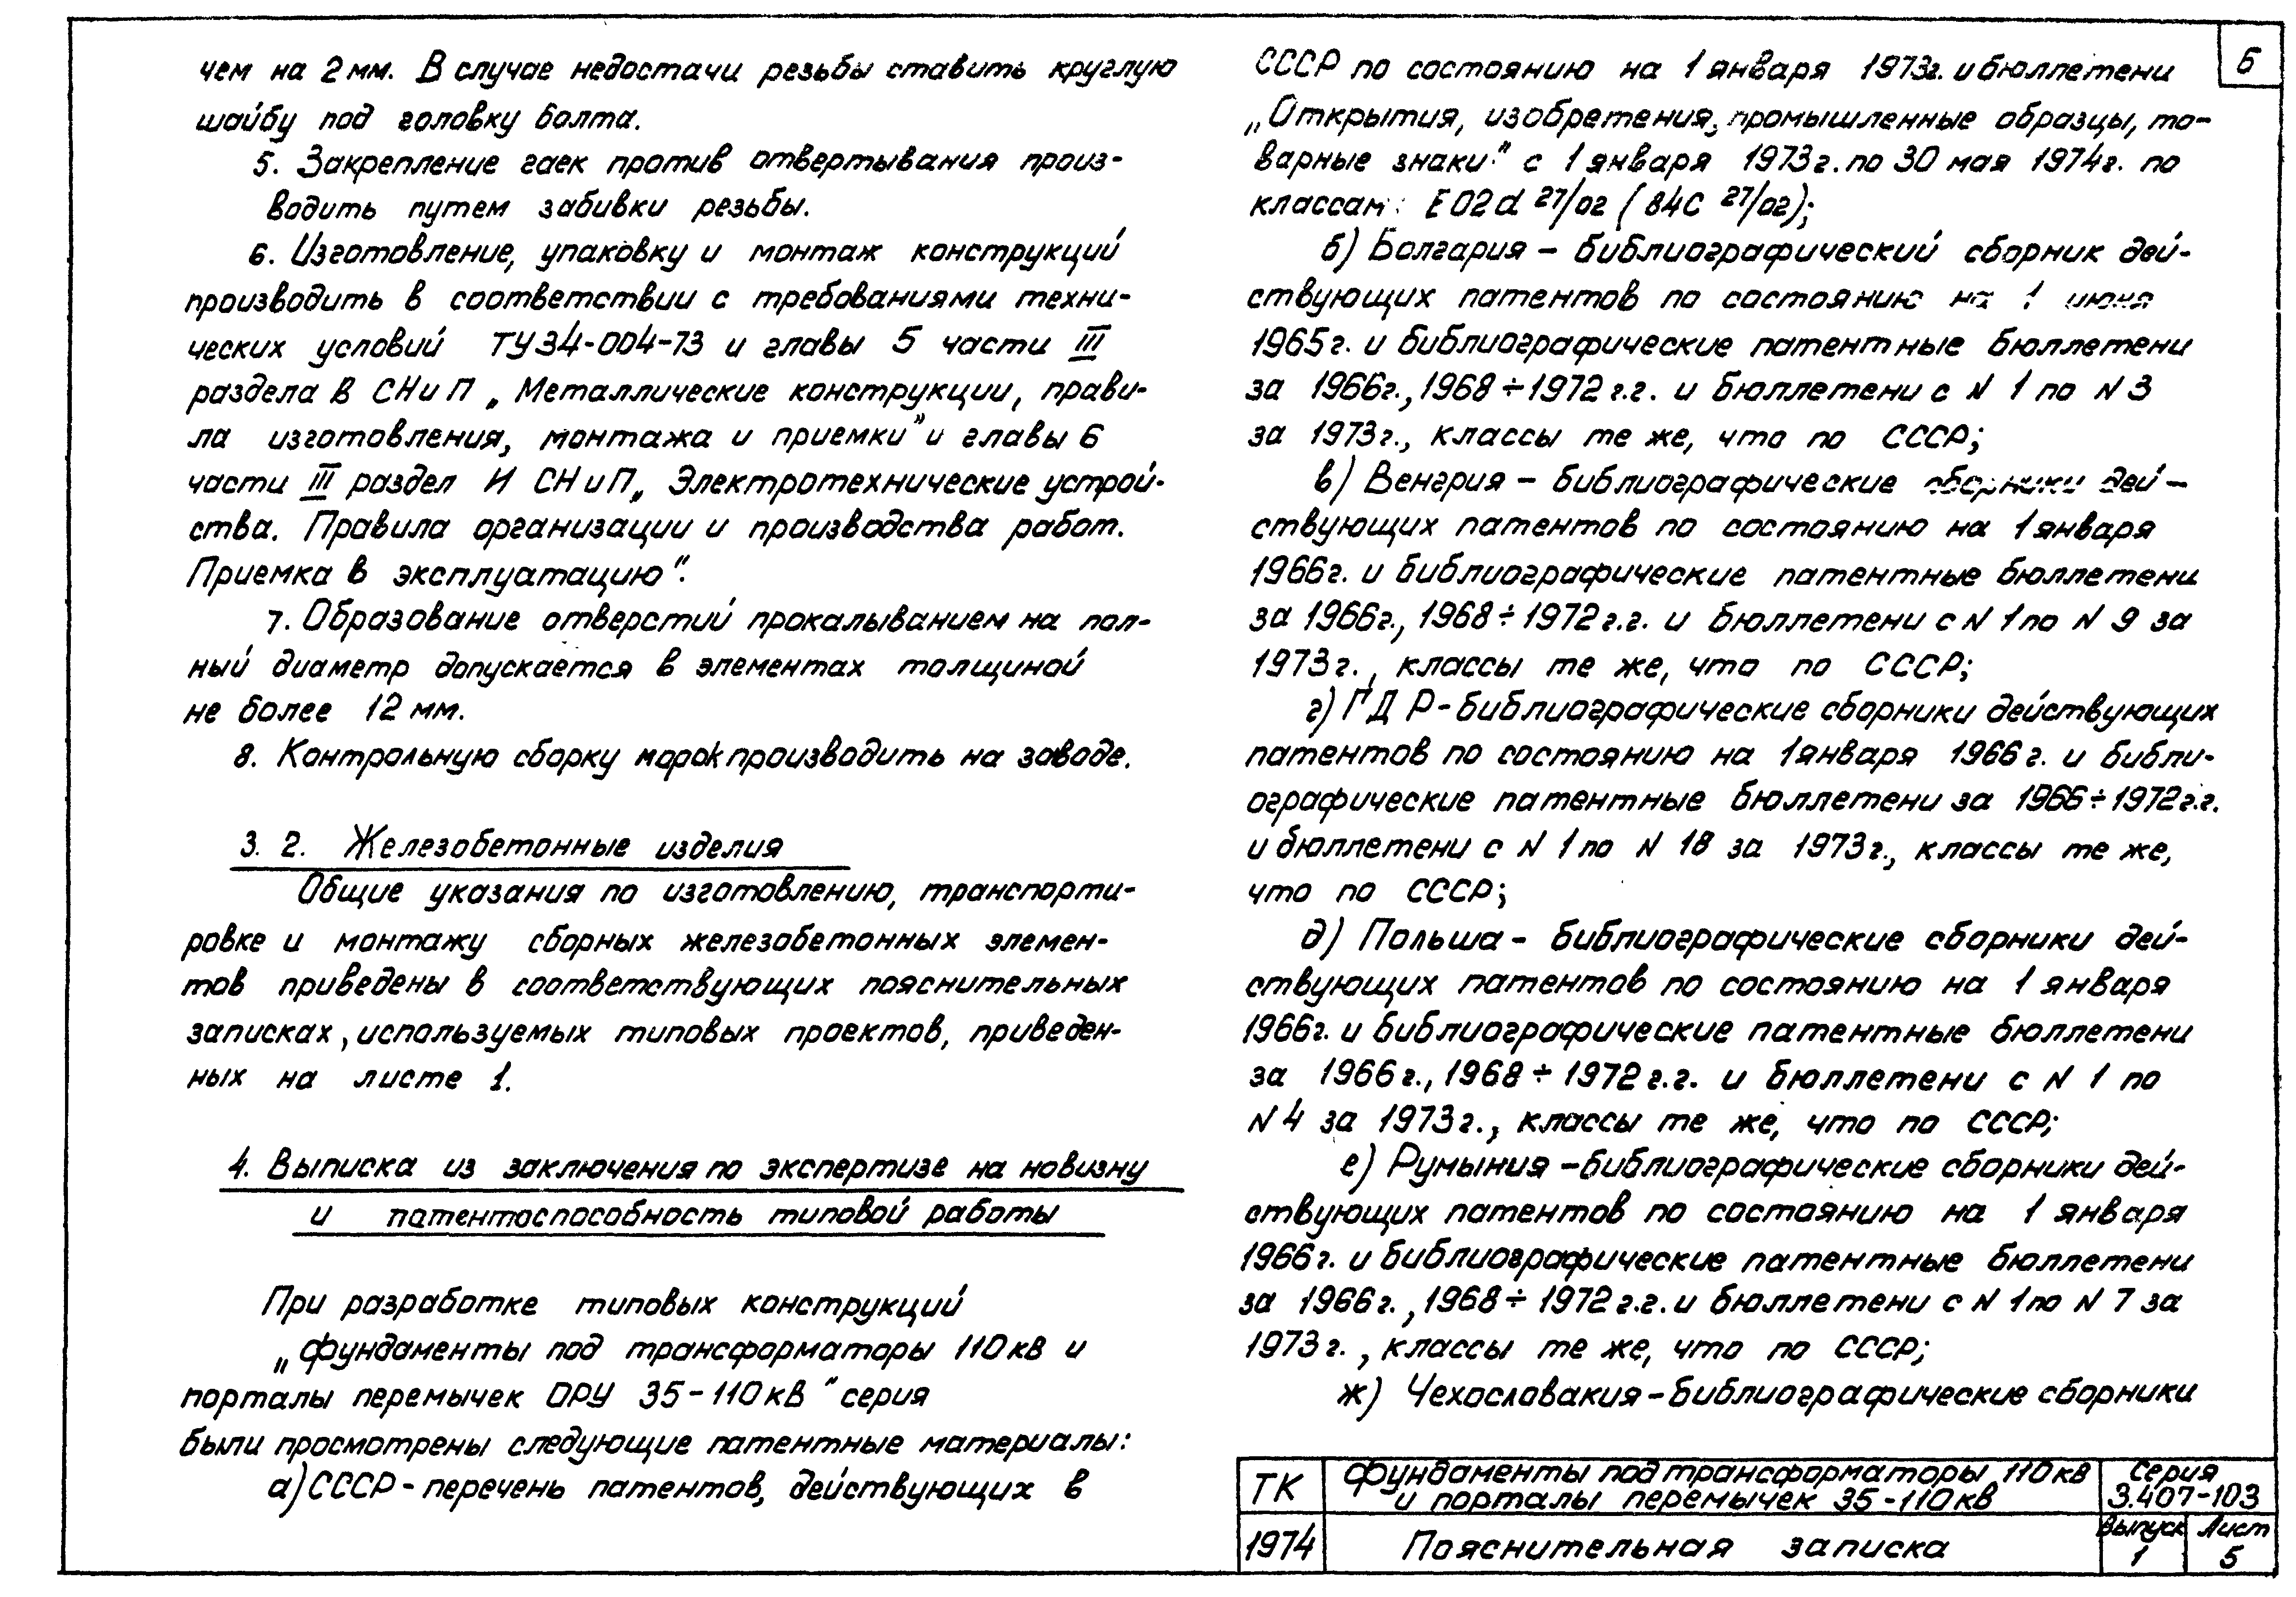 чем на 2 мм. В случае недостачи резьбы ставить круглую
шайбу под головку болта.
5. Закрепление гаек против отвертывания произ-
водить путем забивки резьбы.
6. Изготовление, упаковку и монтаж конструкций
производить в соответствии с требованиями техни-
ческих условий ТУ34-004-73 и главы 5 части III
раздела В СНиП „Металлические конструкции, прави-
ла изготовления, монтажа и приемки" и главы 6
части III раздел И СНиП „Электротехнические устрой-
ства. Правила организации и производства работ.
Приемка в эксплуатацию".
7. Образование отверстий прокалыванием на пол-
ный диаметр допускается в элементах толщиной
не более 12 мм.
8. Контрольную сборку марок производить на заводе.
3. 2. Железобетонные изделия
Общие указания по изготовлению, транспорти-
ровке и монтажу сборных железобетонных элемен-
тов приведены в соответствующих пояснительных
записках, используемых типовых проектов, приведен-
ных на листе 1.
4. Выписка из заключения по экспертизе на новизну
и патентоспособность типовой работы
При разработке типовых конструкций
„Фундаменты под трансформаторы 110кв и
порталы перемычек ОРУ 35-110кв" серия
были просмотрены следующие патентные материалы:
а) СССР - перечень патентов, действующих в
6
СССР по состоянию на 1 января 1973г. и бюллетени
„Открытия, изобретения, промышленные образцы, то-
варные знаки" с 1 января 1973г. по 30 мая 1974г. по
классам: E02d 27/02 (84C 27/02);
б) Болгария - библиографический сборник дей-
ствующих патентов по состоянию на 1 июня
1965г. и библиографические патентные бюллетени
за 1966г., 1968÷1972г.г. и бюллетени с N 1 по N 3
за 1973г., классы те же, что по СССР;
в) Венгрия - библиографические сборники дей-
ствующих патентов по состоянию на 1 января
1966г. и библиографические патентные бюллетени
за 1966г., 1968÷1972г.г. и бюллетени с N 1 по N 9 за
1973г., классы те же, что по СССР;
г) ГДР - библиографические сборники действующих
патентов по состоянию на 1 января 1966г. и библи-
ографические патентные бюллетени за 1966÷1972г.г.
и бюллетени с N 1 по N 18 за 1973г., классы те же,
что по СССР;
д) Польша - библиографические сборники дей-
ствующих патентов по состоянию на 1 января
1966г. и библиографические патентные бюллетени
за 1966г., 1968÷1972г.г. и бюллетени с N 1 по
N 4 за 1973г., классы те же, что по СССР;
е) Румыния - библиографические сборники дей-
ствующих патентов по состоянию на 1 января
1966г. и библиографические патентные бюллетени
за 1966г., 1968÷1972г.г. и бюллетени с N 1 по N 7 за
1973г., классы те же, что по СССР;
ж) Чехословакия - библиографические сборники
ТК
Фундаменты под трансформаторы 110кв
и порталы перемычек 35-110кв
Серия
3.407-103
1974
Пояснительная записка
Выпуск
1
Лист
5